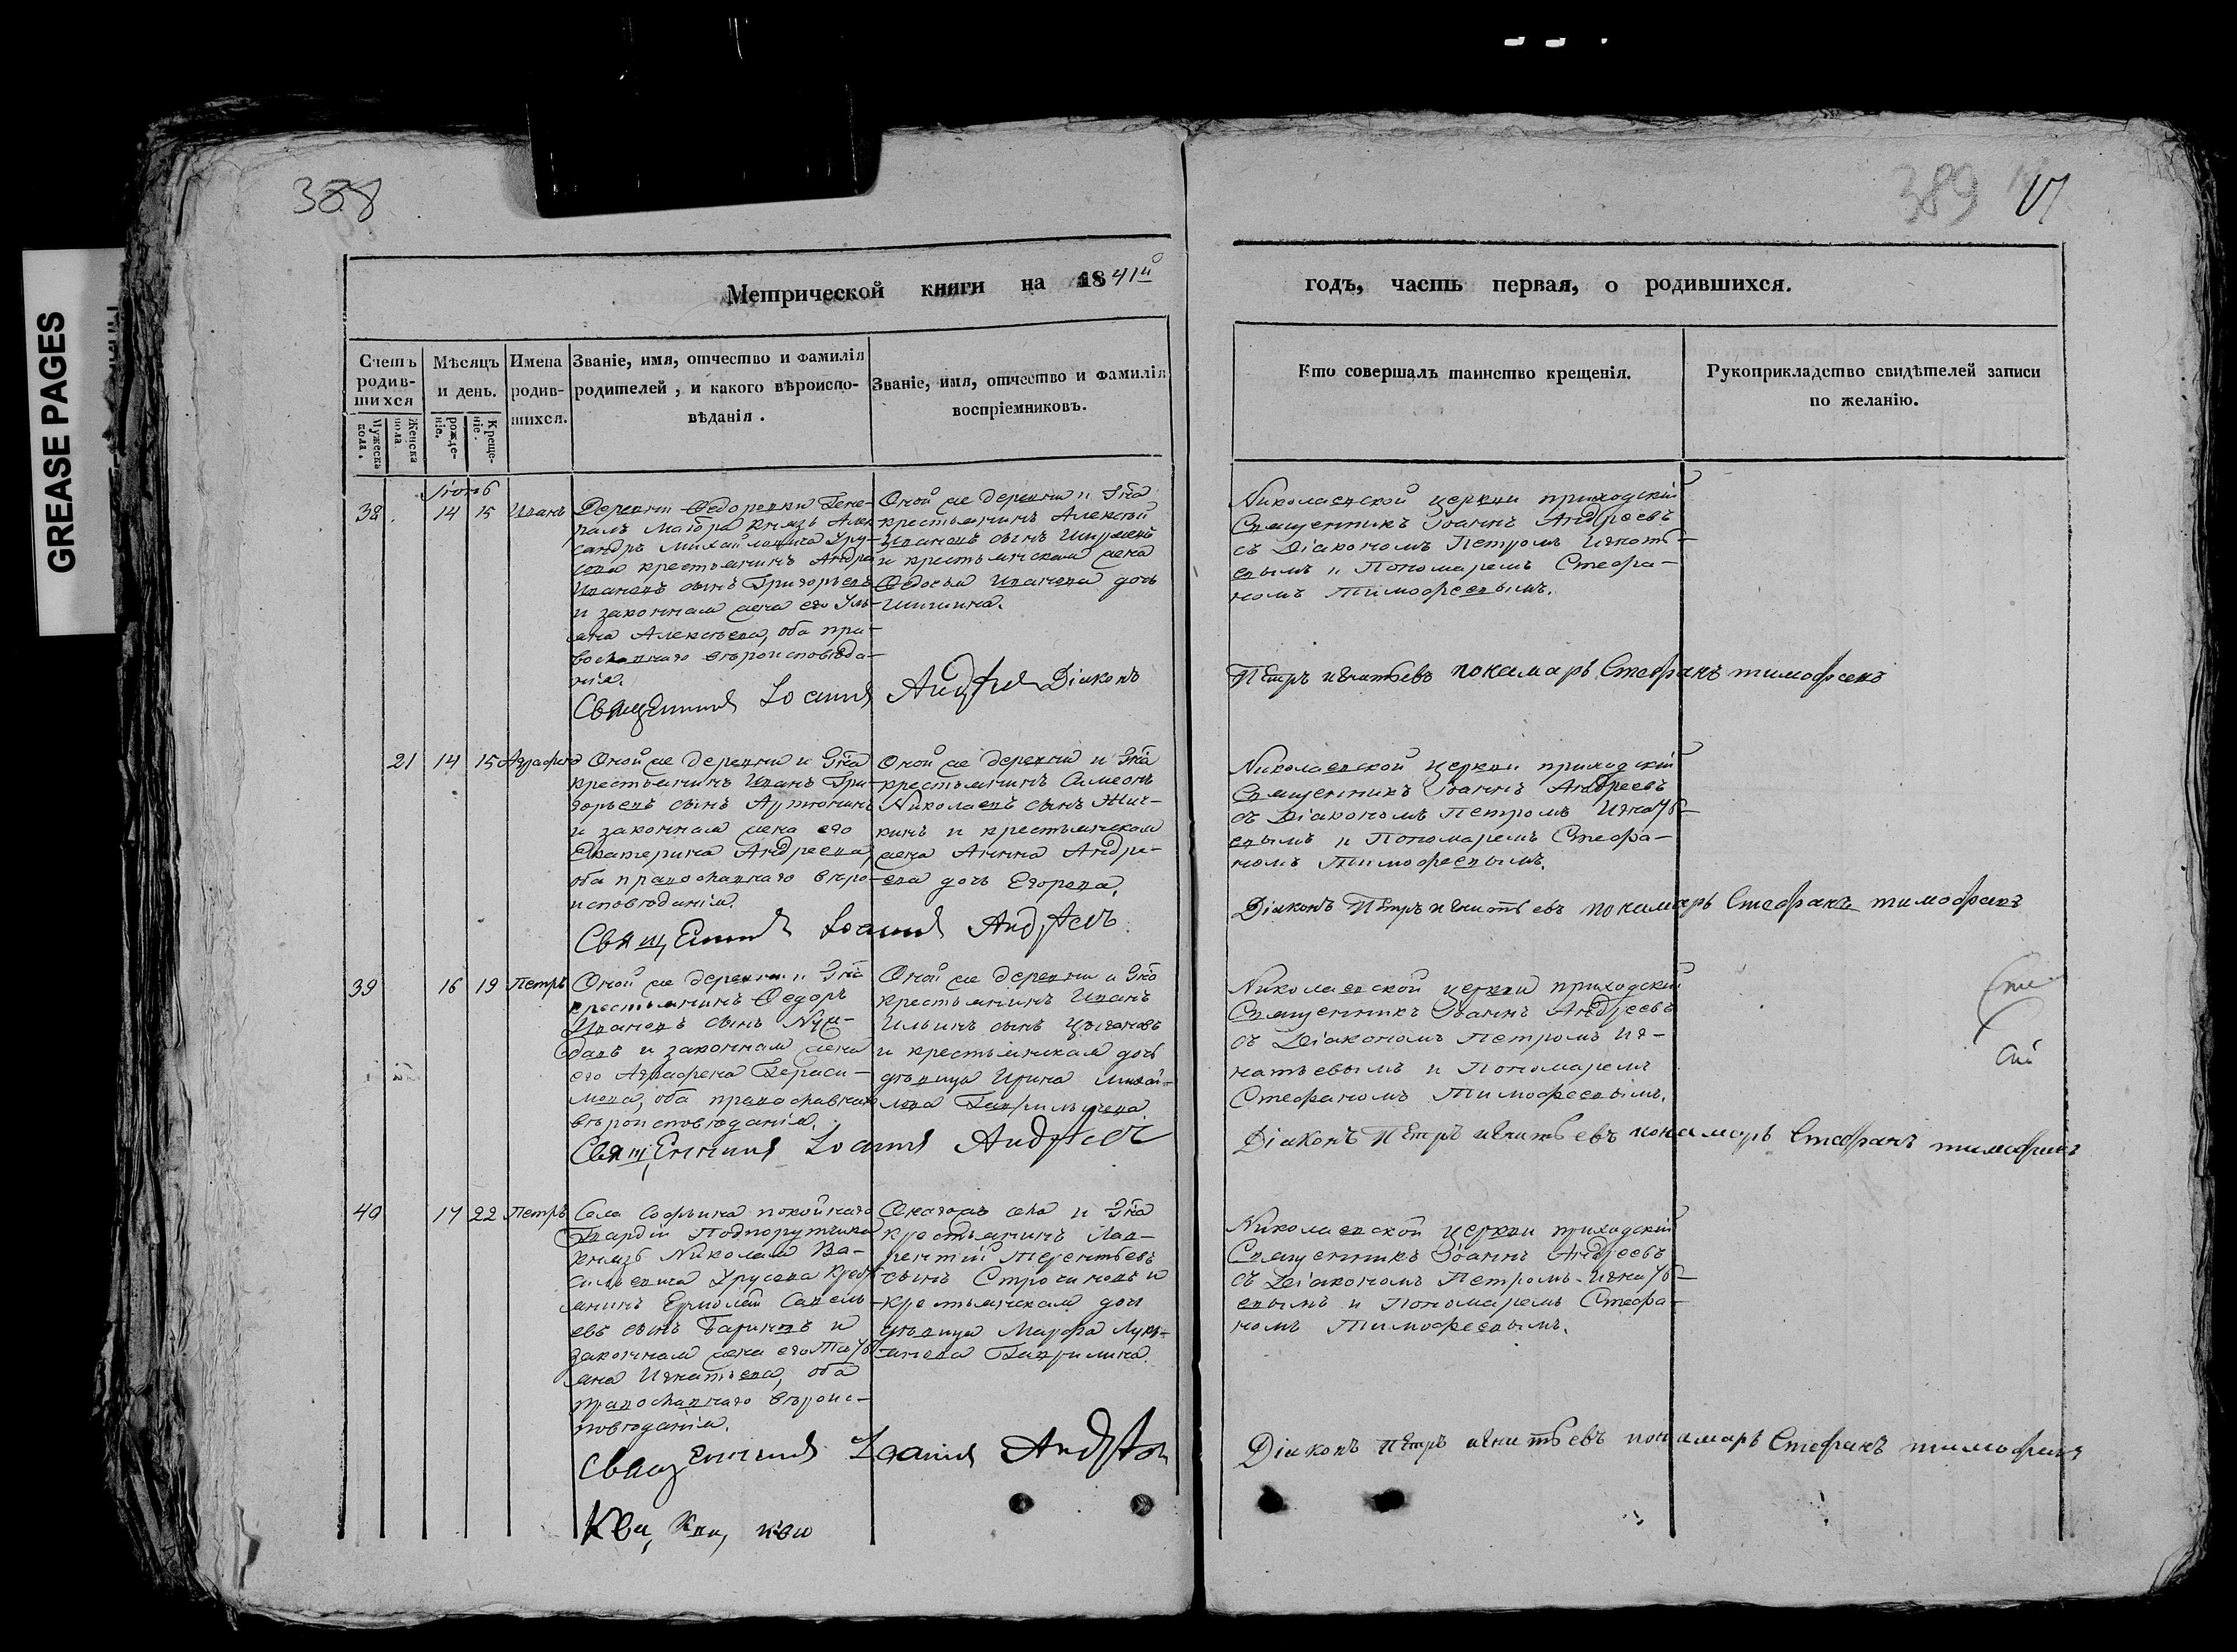 GREASE PAGES
388
389
Метрической книги на 1841й
годъ, часть первая, о родившихся.
Счетъ родившихся
Мужеска пола.
Женска пола
Мѣсяцъ и день.
рожденіе.
Крещеніе.
Имена родившихся.
Званіе, имя, отчество и фамилія
родителей, и какого вѣроиспо-
вѣданія.
Званіе, имя, отчество и фамилія
воспріемниковъ.
Кто совершалъ таинство крещенія.
Рукоприкладство свидѣтелей записи
по желанію.
Іюнь
38. 14 15 Иванъ
Деревни Федоровки Гене-
ралъ Маіора Князь Алек
сандръ Михайловича Уру-
сова крестьянинъ Андрей
Ивановъ сынъ Григорьевъ
и законная жена его Уль-
яна Алексѣева, оба пра-
вославнаго вѣроисповѣда-
нія.
Оной же деревни и Гна
крестьянинъ Алексѣй
Ивановъ сынъ
и крестьянская жена
Федосья Иванова дочь
Николаевской церкви приходскій
Священникъ Іоаннъ Андреевъ
съ Діакономъ Петромъ Игнать-
евымъ и Пономаремъ Стефа-
номъ Тимофеевымъ.
Священникъ Іоаннъ Андреевъ Діаконъ
Петръ Игнатьевъ понамарь Стефанъ тимофеевъ
21 14 15 Аграфена
Оной же деревни и Гна
крестьянинъ Иванъ Гри-
горьевъ сынъ Артюнинъ
и законная жена его
Екатерина Андреева,
оба православнаго вѣро-
исповѣданія.
Оной же деревни и Гна
крестьянинъ Симеонъ
Николаевъ сынъ Жит-
кинъ и крестьянская
жена Анна Андре-
ева дочь Егорева.
Николаевской церкви приходскій
Священникъ Іоаннъ Андреевъ
съ Діакономъ Петромъ Игнать-
евымъ и Пономаремъ Стефа-
номъ Тимофеевымъ.
Священникъ Іоаннъ Андреевъ
Діаконъ Петръ игнатьевъ понамарь Стефанъ тимофеевъ
39 16 19 Петръ
Оной же деревни и Гна
крестьянинъ Федоръ
Ивановъ сынъ
и законная жена
его Аграфена Гераси-
мова, оба православнаго
вѣроисповѣданія.
Оной же деревни и Гна
крестьянинъ Иванъ
Ильинъ сынъ Цыгановъ
и крестьянская дочь
дѣвица Ирина Михай-
лова
Николаевской церкви приходскій
Священникъ Іоаннъ Андреевъ
съ Діакономъ Петромъ Иг-
натьевымъ и Пономаремъ
Стефаномъ Тимофеевымъ.
Священникъ Іоаннъ Андреевъ
Діаконъ Петръ игнатьевъ понамарь Стефанъ тимофеевъ
40 17 22 Петръ
Села Софьина покойнаго
Гвардіи Подпорутчика
Князь Николая Ва-
сильевича Урусова кресть
янинъ Ермолай Савель
евъ сынъ Бариновъ и
законная жена его Тать
яна Игнатьева, оба
православнаго вѣроис-
повѣданія.
Онагожъ села и Гна
крестьянинъ Лав-
рентій Терентьевъ
сынъ Строчиновъ и
крестьянская дочь
дѣвица Марфа Лукь-
янова Гаврилина.
Николаевской церкви приходскій
Священникъ Іоаннъ Андреевъ
съ Діакономъ Петромъ Игнать-
евымъ и Пономаремъ Стефа-
номъ Тимофеевымъ.
Священникъ Іоаннъ Андреевъ
Діаконъ Петръ игнатьевъ понамарь Стефанъ тимофеевъ